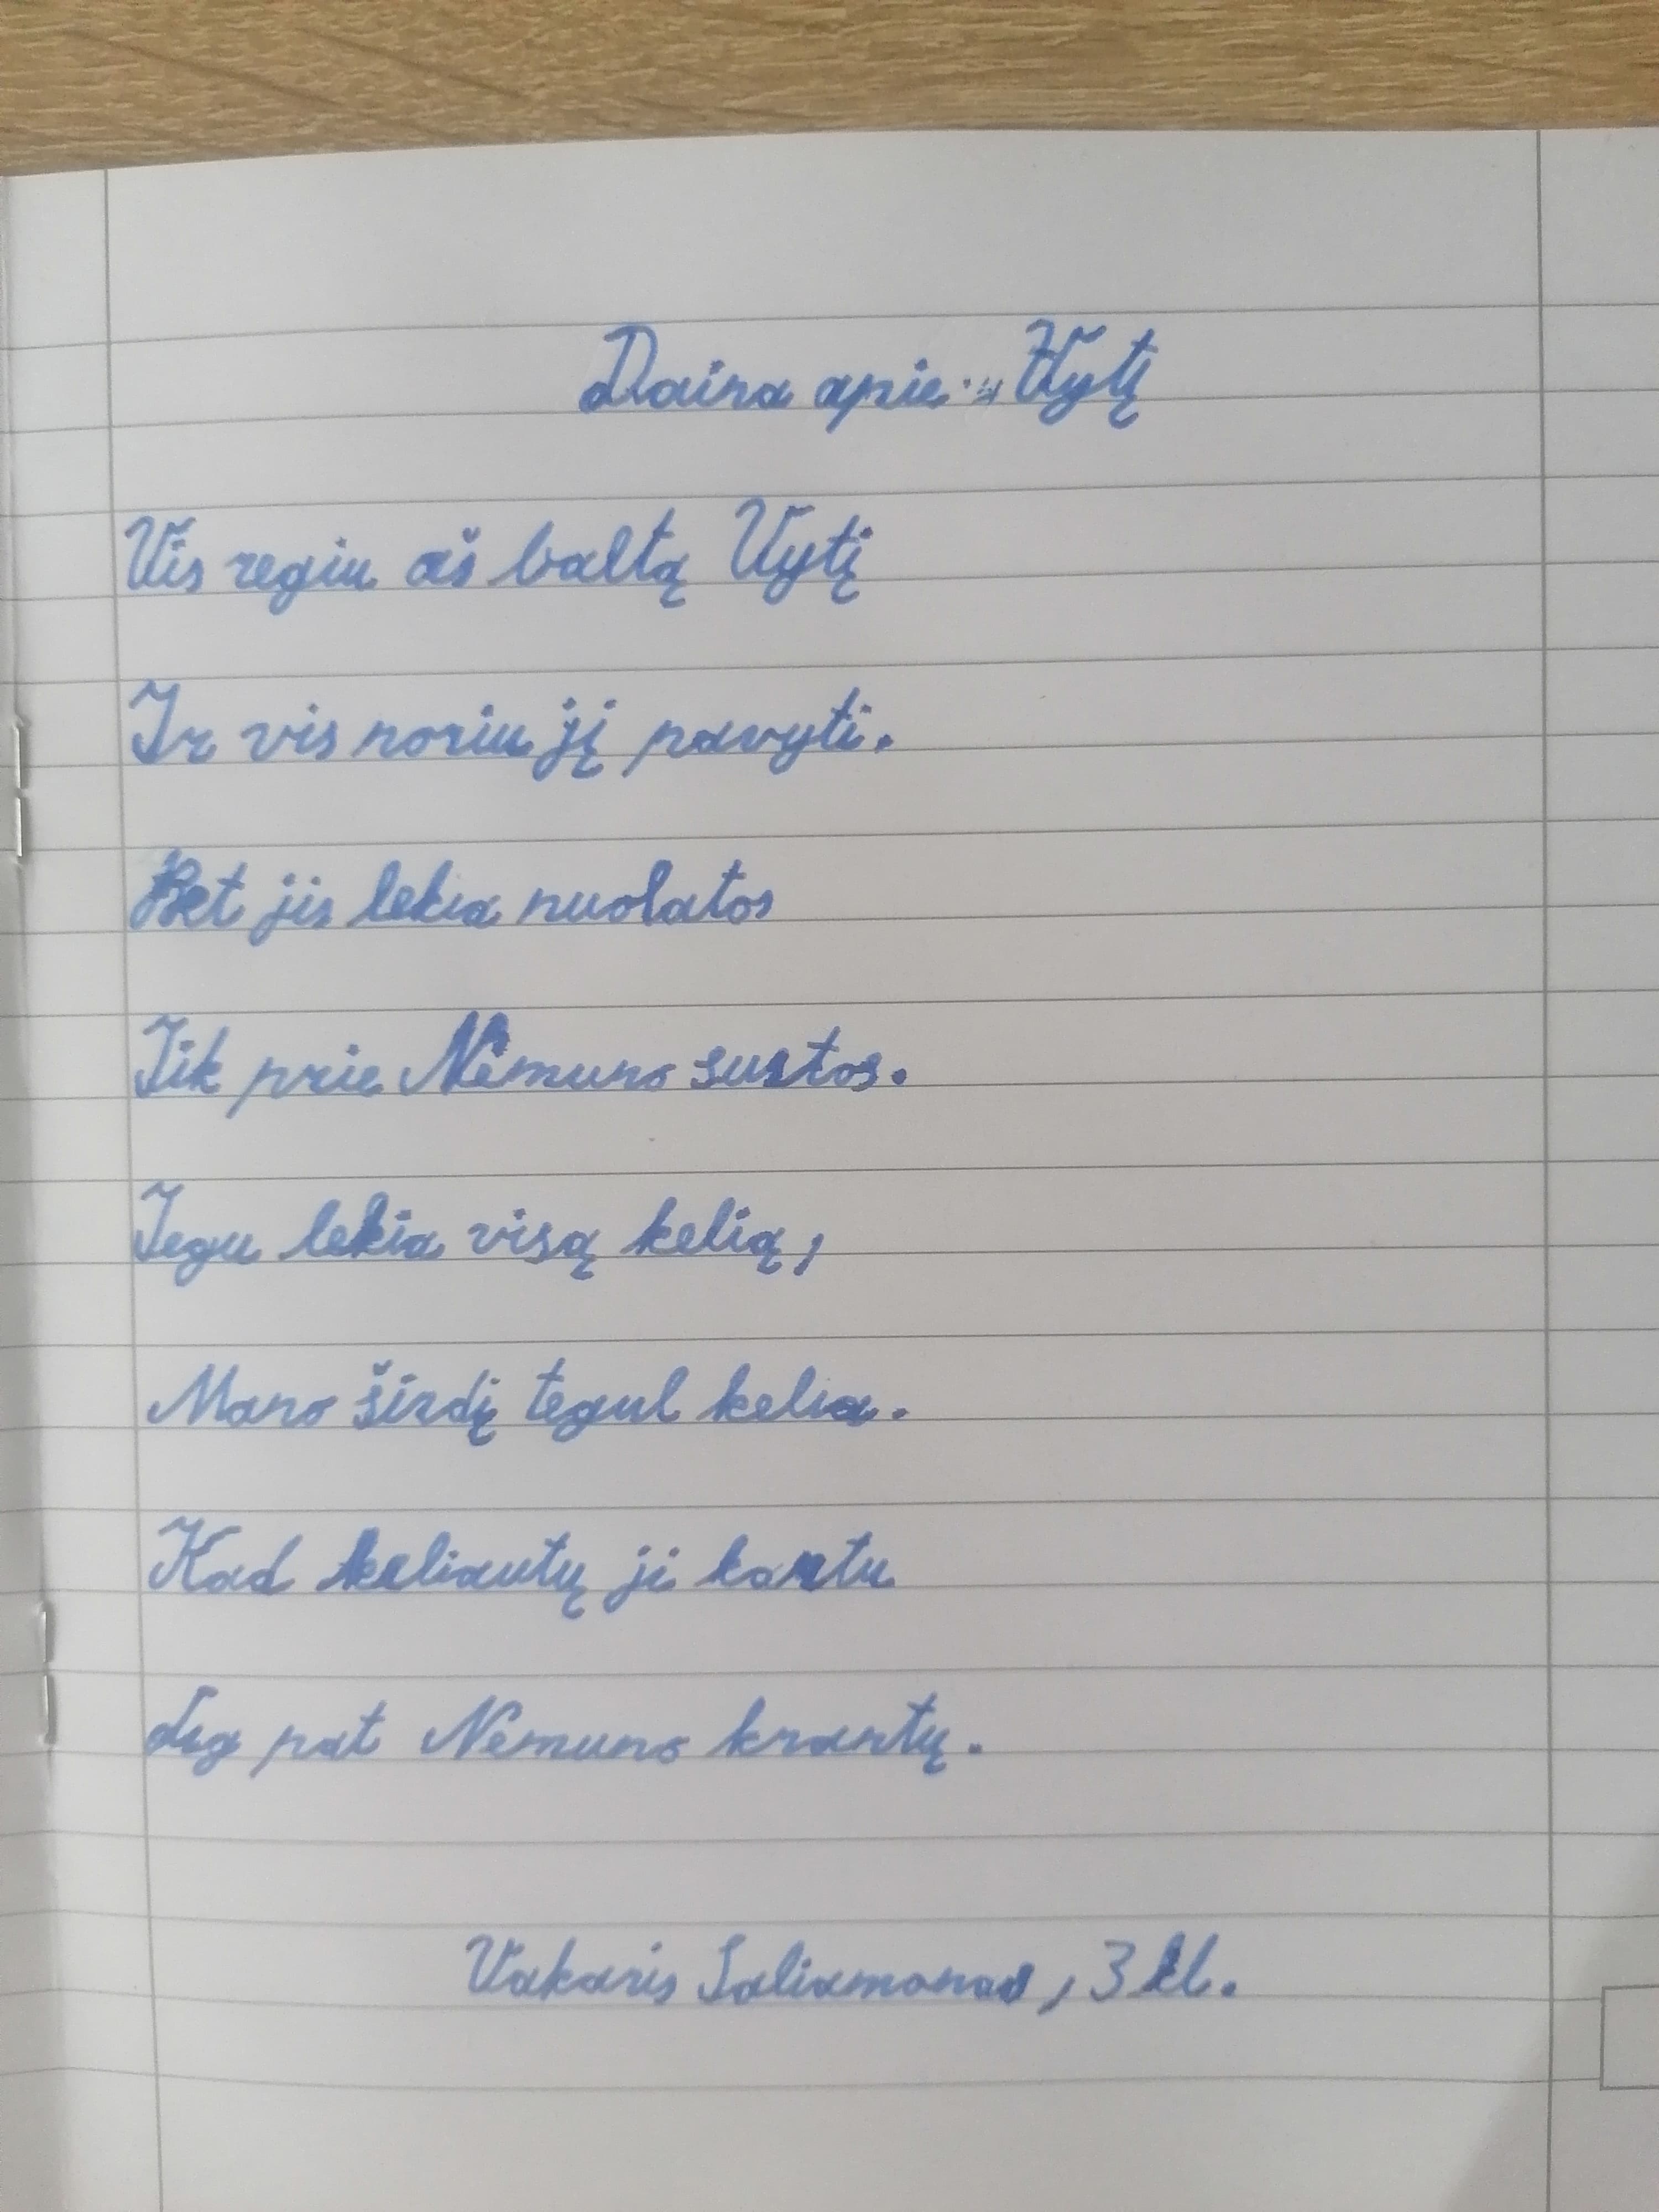 Daina apie Vytį
Vis regiu aš baltą Vytį
Ir vis noriu jį pavyti.
Bet jis lekia nuolatos
Tik prie Nemuno sustos.
Tegu lekia visą kelią,
Mano širdį tegul kelia.
Kad keliautų ji kartu
Lig pat Nemuno krantų.
Vakaris Saliamonas, 3 kl.